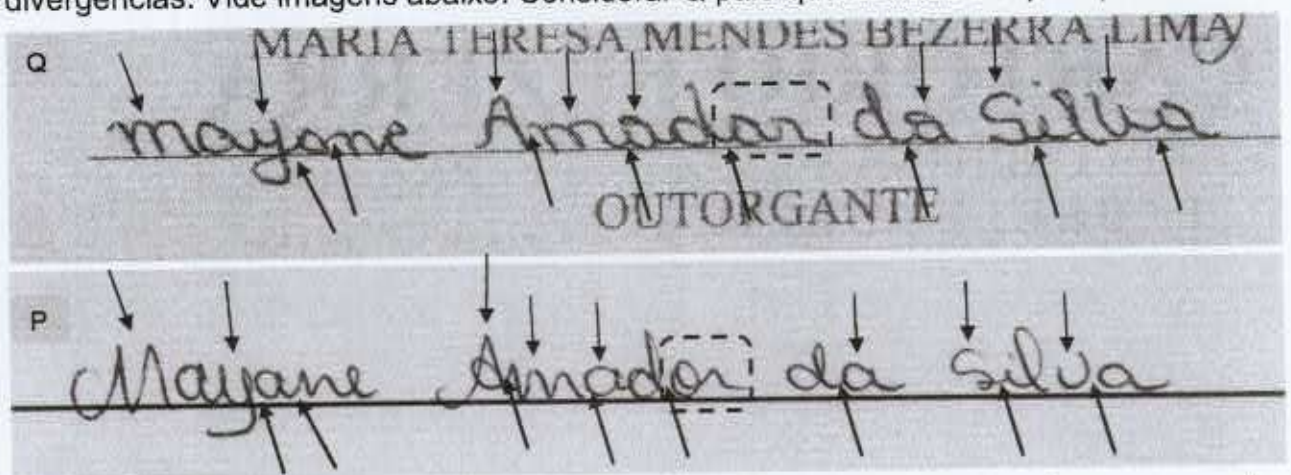 divergências. Vide imagens abaixo. Considerar a
Q
MARIA TERESA MENDES BEZERRA LIMA
mayane Amadar da Silva
OUTORGANTE
P
Mayane Amador da Silva